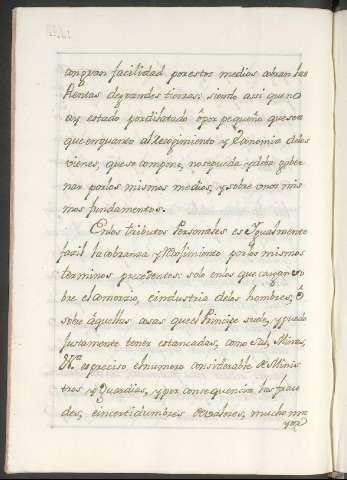 con gran facilidad por estos medios cobran las
Rentas de grandes tierras: siendo assi que no
ay estado por dilatado ò por pequeño que sea
que en quanto al Recojimiento y Economia delos
vienes, que se compre, no se pueda, y deba gober
nar por los mismos medios, y sobre unos mis
mos fundamentos.
En los tributos Personales es Igualmente
facil la cobranza y Recojimiento por los mismos
terminos precedentes: solo en los que cargan so
bre el comercio, e industria de los hombres, ò
sobre aquellas cosas que el Principe suele, y puede
Justamente tener estancadas, como Sal, Minas,
es preciso el numero considerable de Minis
tros y Guardias, y por consequencia los frau
des, e incertidumbres de valores, mucho ma
yor